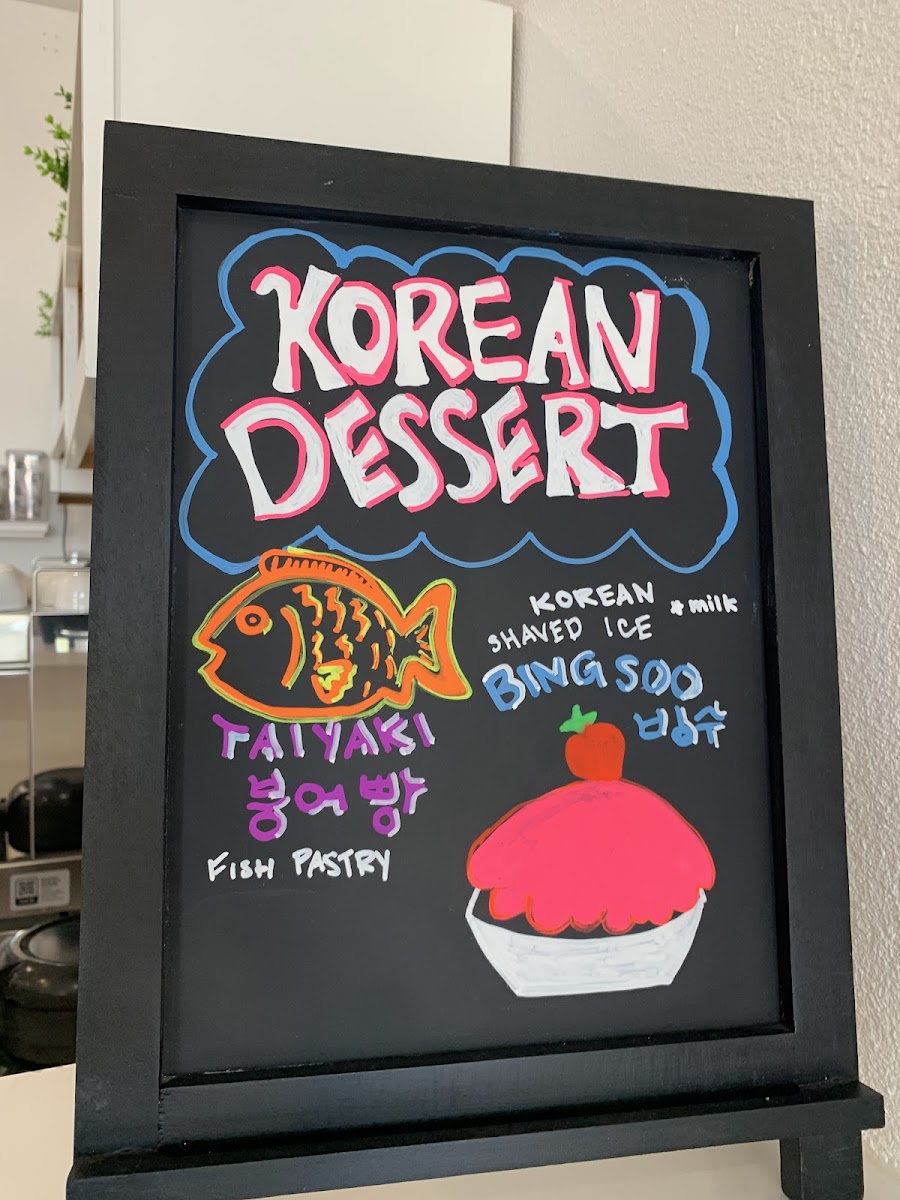 KOREAN
DESSERT
TAIYAKI
붕어빵
FISH PASTRY
KOREAN
SHAVED ICE
*milk
BING SOO
빙수